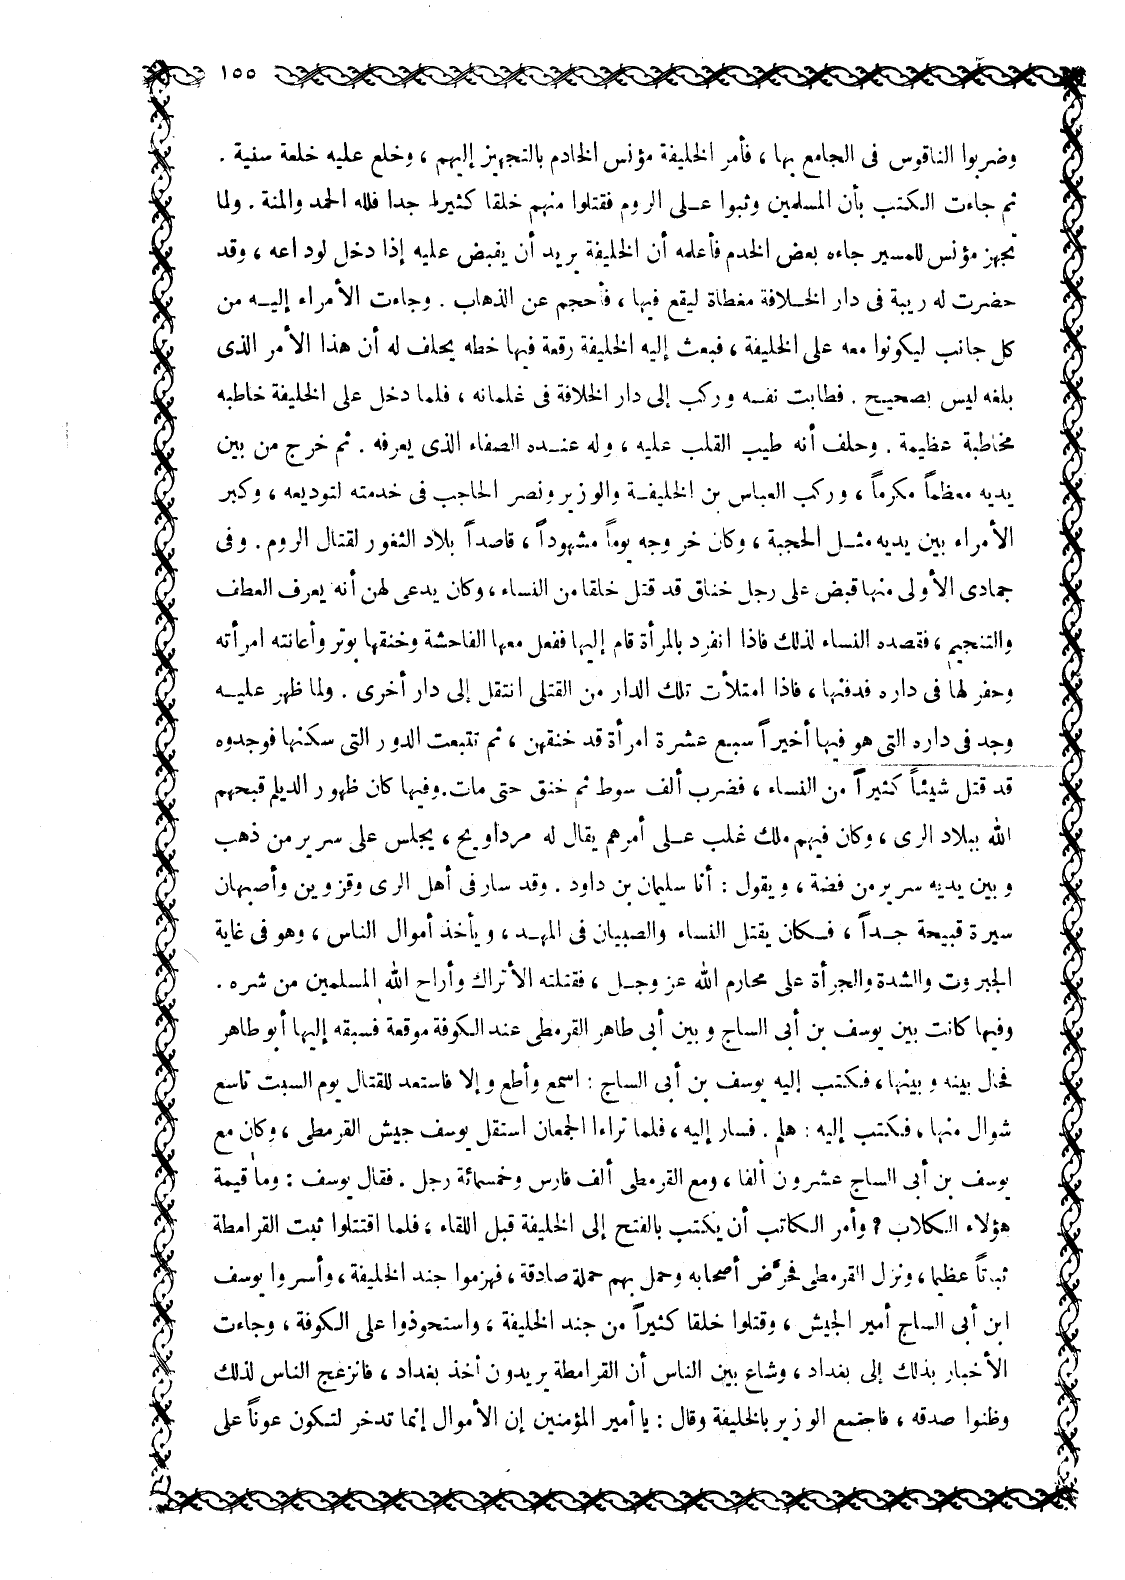 ١٥٥
وضربوا الناقوس فى الجامع بها ، فأمر الخليفة مؤنس الخادم بالتجهيز إليهم ، وخلع عليه خلعة سنية .
ثم جاءت الكتب بأن المسلمين وثبوا على الروم فقتلوا منهم خلقا كثيرا جدا فلله الحمد والمنة . ولما
تجهز مؤنس للمسير جاءه بعض الخدم فأعلمه أن الخليفة يريد أن يقبض عليه إذا دخل لوداعه ، وقد
حضرت له ريبة فى دار الخلافة مغطاة ليقع فيها ، فأحجم عن الذهاب . وجاءت الأمراء إليه من
كل جانب ليكونوا معه على الخليفة ، فبعث إليه الخليفة رقعة فيها خطه يحلف له أن هذا الأمر الذى
بلغه ليس بصحيح . فطابت نفسه وركب إلى دار الخلافة فى غلمانه ، فلما دخل على الخليفة خاطبه
مخاطبة عظيمة . وحلف أنه طيب القلب عليه ، وله عنده الصفاء الذى يعرفه . ثم خرج من بين
يديه معظماً مكرماً ، وركب العباس بن الخليفة والوزير ونصر الحاجب فى خدمته لتوديعه ، وكبر
الأمراء بين يديه مثل الحجبة ، وكان خروجه يوماً مشهوداً ، قاصداً بلاد الثغور لقتال الروم . وفى
جمادى الأولى منها قبض على رجل خناق قد قتل خلقا من النساء ، وكان يدعى لهن أنه يعرف العطف
والتنجيم ، فقصده النساء لذلك فاذا انفرد بالمرأة قام إليها ففعل معها الفاحشة وخنقها بوتر وأعانته امرأته
وحفر لها فى داره فدفنها ، فاذا امتلأت تلك الدار من القتلى انتقل إلى دار أخرى . ولما ظهر عليه
وجد فى داره التى هو فيها أخيراً سبع عشرة امرأة قد خنقهن ، ثم تتبعت الدور التى سكنها فوجدوه
قد قتل شيئاً كثيراً من النساء ، فضرب ألف سوط ثم خنق حتى مات . وفيها كان ظهور الديلم قبحهم
الله ببلاد الرى ، وكان فيهم ملك غلب على أمرهم يقال له مرداويح ، يجلس على سرير من ذهب
وبين يديه سرير من فضة ، ويقول : أنا سليمان بن داود . وقد سار فى أهل الرى وقزوين وأصبهان
سيرة قبيحة جداً ، فكان يقتل النساء والصبيان فى المهد ، ويأخذ أموال الناس ، وهو فى غاية
الجبروت والشدة والجرأة على محارم الله عز وجل ، فقتلته الأتراك وأراح الله المسلمين من شره .
وفيها كانت بين يوسف بن أبى الساج وبين أبى طاهر القرمطى عند الكوفة موقعة فسبقه إليها أبو طاهر
فحال بينه وبينها ، فكتب إليه يوسف بن أبى الساج : اسمع وأطع وإلا فاستعد للقتال يوم السبت تاسع
شوال منها ، فكتب إليه : هلم . فسار إليه ، فلما تراءا الجمعان استقل يوسف جيش القرمطى ، وكان مع
يوسف بن أبى الساج عشرون ألفا ، ومع القرمطى ألف فارس وخمسمائة رجل . فقال يوسف : وما قيمة
هؤلاء الكلاب ? وأمر الكاتب أن يكتب بالفتح إلى الخليفة قبل اللقاء ، فلما اقتتلوا ثبت القرامطة
ثباتاً عظيما ، ونزل القرمطى فحرّض أصحابه وحمل بهم حملة صادقة ، فهزموا جند الخليفة ، وأسروا يوسف
ابن أبى الساج أمير الجيش ، وقتلوا خلقا كثيراً من جند الخليفة ، واستحوذوا على الكوفة ، وجاءت
الأخبار بذلك إلى بغداد ، وشاع بين الناس أن القرامطة يريدون أخذ بغداد ، فانزعج الناس لذلك
وظنوا صدقه ، فاجتمع الوزير بالخليفة وقال : يا أمير المؤمنين إن الأموال إنما تدخر لتكون عوناً على